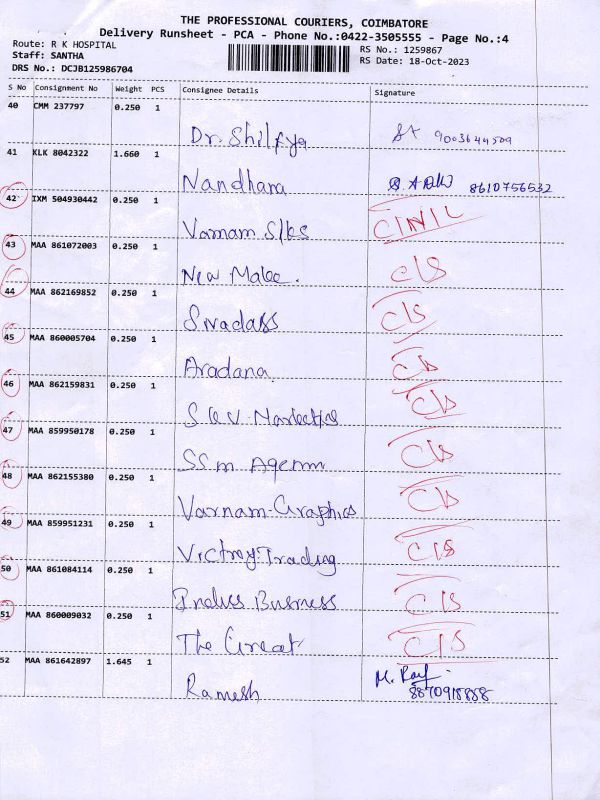 THE PROFESSIONAL COURIERS, COIMBATORE
Delivery Runsheet - PCA - Phone No.:0422-3505555 - Page No.:4
Route: R K HOSPITAL
Staff: SANTHA
DRS No.: DCJB125986704
RS No.: 1259867
RS Date: 18-Oct-2023
S No Consignment No Weight PCS Consignee Details Signature
40 CMM 237797 0.250 1
Dr. Shilfya
41 KLK 8042322 1.660 1
Nandhana 8610756532
42 IXM 504930442 0.250 1
Varnam Slks
43 MAA 861072003 0.250 1
New Malee. C/S
44 MAA 862169852 0.250 1
Sivadass C/S
45 MAA 860005704 0.250 1
Aradana C/S
46 MAA 862159831 0.250 1
C/S
47 MAA 859950178 0.250 1
SSM C/S
48 MAA 862155380 0.250 1
Varnam Graphics C/S
49 MAA 859951231 0.250 1
Victroy Trading C/S
50 MAA 861084114 0.250 1
Indus Business C/S
51 MAA 860009032 0.250 1
The Great C/S
52 MAA 861642897 1.645 1
Ramesh